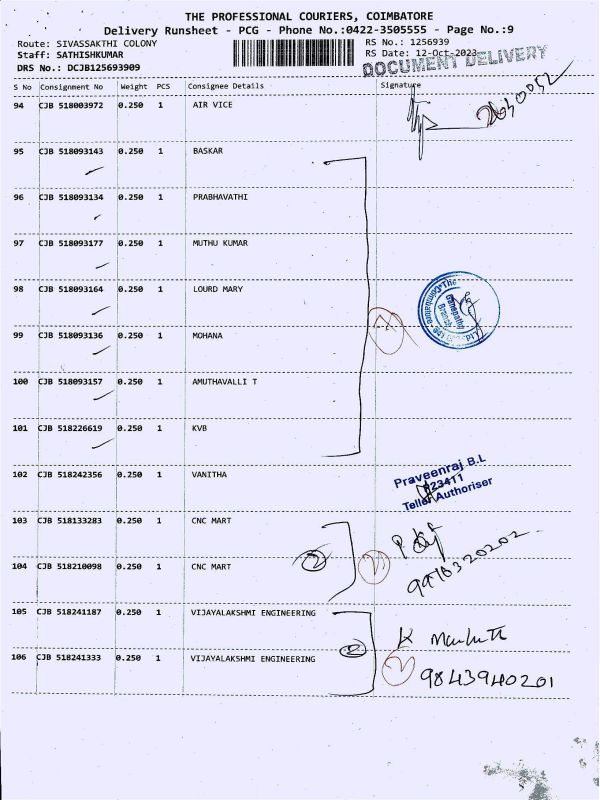 THE PROFESSIONAL COURIERS, COIMBATORE
Delivery Runsheet - PCG - Phone No.:0422-3505555 - Page No.:9
Route: SIVASSAKTHI COLONY RS No.: 1256939
Staff: SATHISHKUMAR RS Date: 12-Oct-2023
DRS No.: DCJB125693909
DOCUMENT DELIVERY
S No Consignment No Weight PCS Consignee Details Signature
94 CJB 518003972 0.250 1 AIR VICE
95 CJB 518093143 0.250 1 BASKAR
96 CJB 518093134 0.250 1 PRABHAVATHI
97 CJB 518093177 0.250 1 MUTHU KUMAR
98 CJB 518093164 0.250 1 LOURD MARY
99 CJB 518093136 0.250 1 MOHANA
100 CJB 518093157 0.250 1 AMUTHAVALLI T
101 CJB 518226619 0.250 1 KVB
102 CJB 518242356 0.250 1 VANITHA
Praveenraj B.L
23411
Teller Authoriser
103 CJB 518133283 0.250 1 CNC MART
2
104 CJB 518210098 0.250 1 CNC MART
105 CJB 518241187 0.250 1 VIJAYALAKSHMI ENGINEERING
2
106 CJB 518241333 0.250 1 VIJAYALAKSHMI ENGINEERING
9843940201